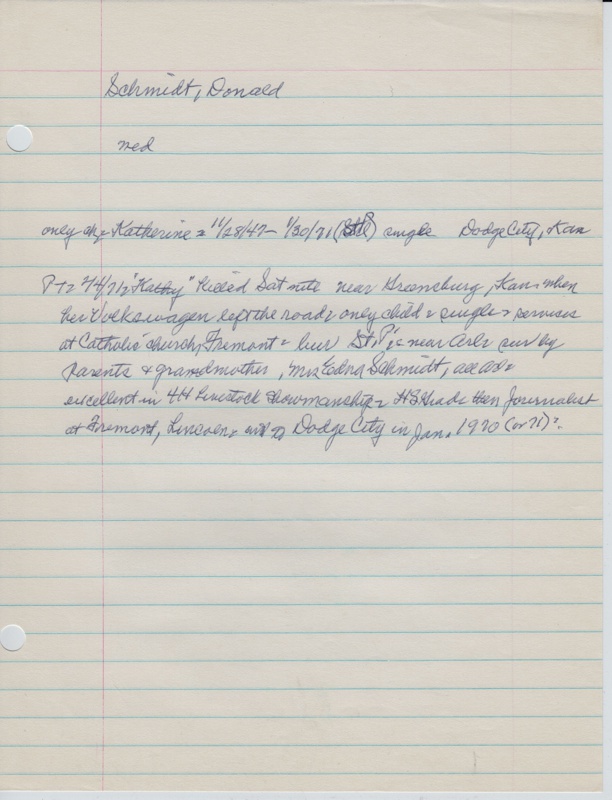 Schmidt, Donald
ned
only ch, = Katherine = 11/28/47 - 1/30/71 (St P) single Dodge City, Kan
P+T 2/4/71 = "Kathy" killed Sat nite near Greensburg, Kans when
her Volkswagen left the road = only child = single = services
at Catholic church, Fremont = bur St. P's = near Arl = sur by
parents & grandmother, Mrs Edna Schmidt, all ad =
excellent in 4H Livestock Showmanship = HS Grad = then Journalist
at Fremont, Lincoln, and to Dodge City in Jan. 1970 (or 71)?.